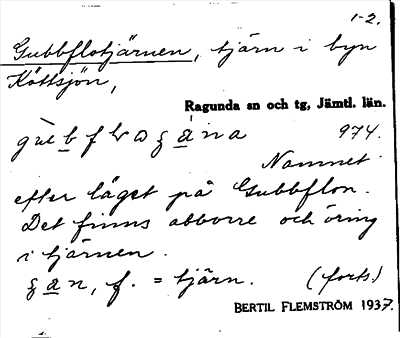 1-2.
Gubbflotjärnen, tjärn i byn
Köttsjön,
Ragunda sn och tg, Jämtl. län.
974.
Namnet
efter läget på Gubbflon.
Det finns abborre och öring
i tjärnen.
f. = tjärn. (forts.)
BERTIL FLEMSTRÖM 1937.